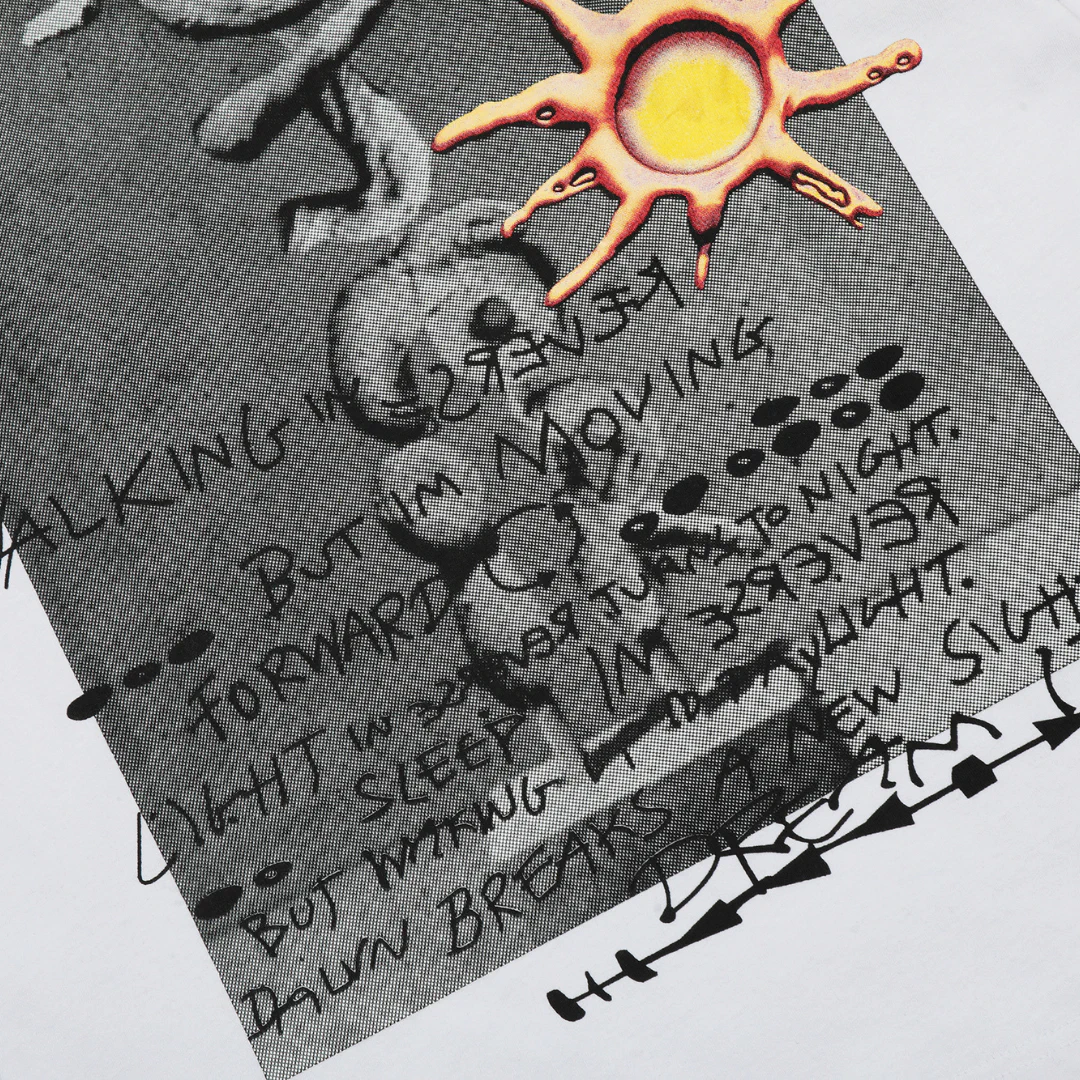 ALKING IN ESREVER
BUT IM MOVING
FORWARD
LIGHT IN ESREVER TURNS TO NIGHT.
SLEEP IM ESREVER
BUT WAKING IT TO DAYLIGHT.
DAWN BREAKS A NEW SIGHT
DREAM